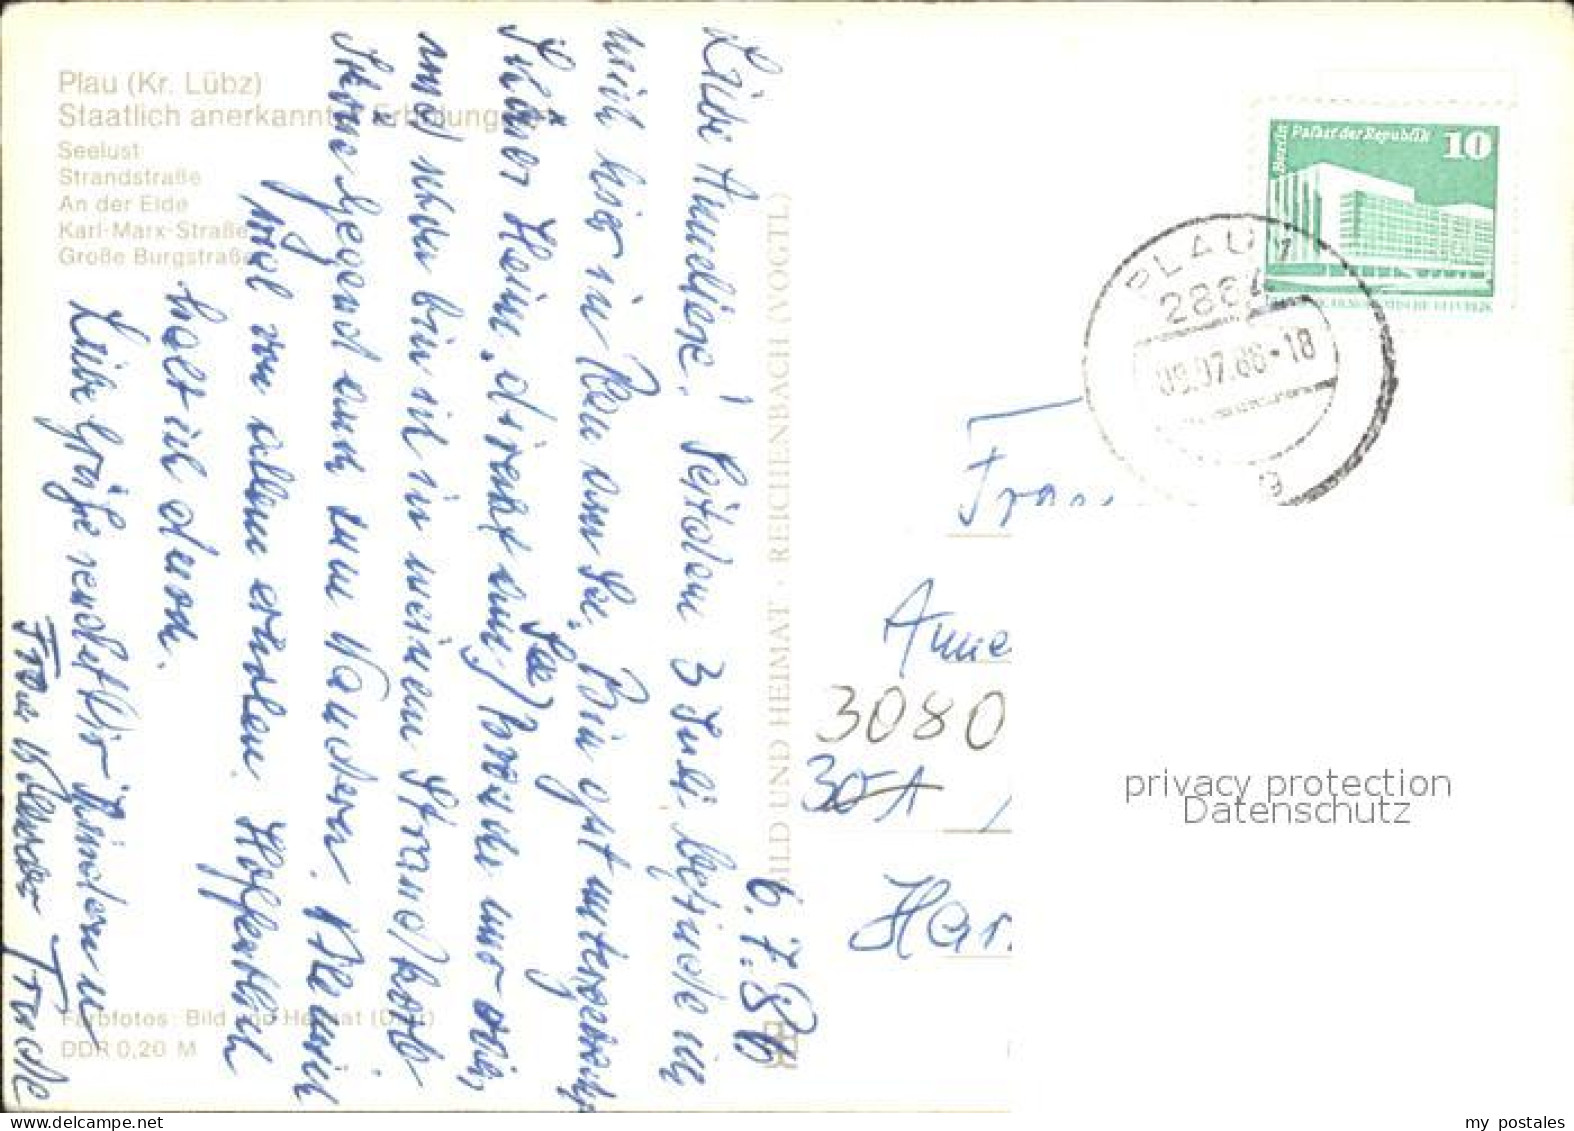 Plau (Kr. Lübz)
Staatlich anerkannter Erholungsort
Seelust
Strandstraße
An der Elde
Karl-Marx-Straße
Große Burgstraße
Farbfotos: Bild und Heimat
DDR 0,20 M
BILD UND HEIMAT · REICHENBACH (VOGTL)
6.7.86
Liebe Anneliese! Seit dem 3 Juli befinde ich
mich hier in Plau am See. Bin gut untergebracht
Schönes Heim, direkt am (See) Bräune
und schon bin ich in meinem Strandkorb
Schöne Gegend auch zum Wandern.
mal von allem erholen. Hoffentlich
halt ich durch.
Liebe Grüße sendet Dir Kindern u
Frau Trude
Berlin Palast der Republik 10
PLAU 1
2864
09.07.86-18
a
Anne
3080
30
Har
privacy protection
Datenschutz
my postales